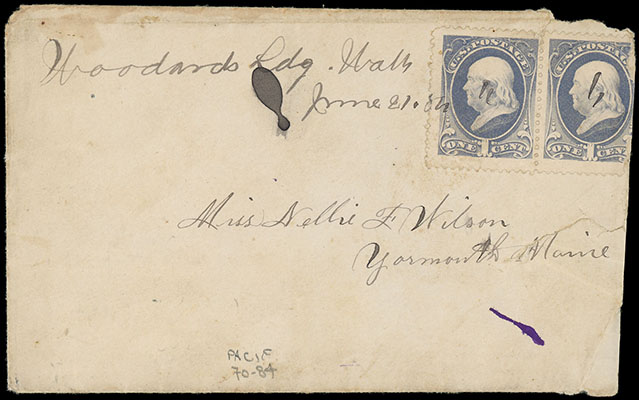 Woodards Ldg. Wash
June 21. 84
U.S. POSTAGE
ONE 1 CENT
U.S. POSTAGE
ONE 1 CENT
Miss Nellie F Wilson
Yormouth Maine
PACIF
70-84